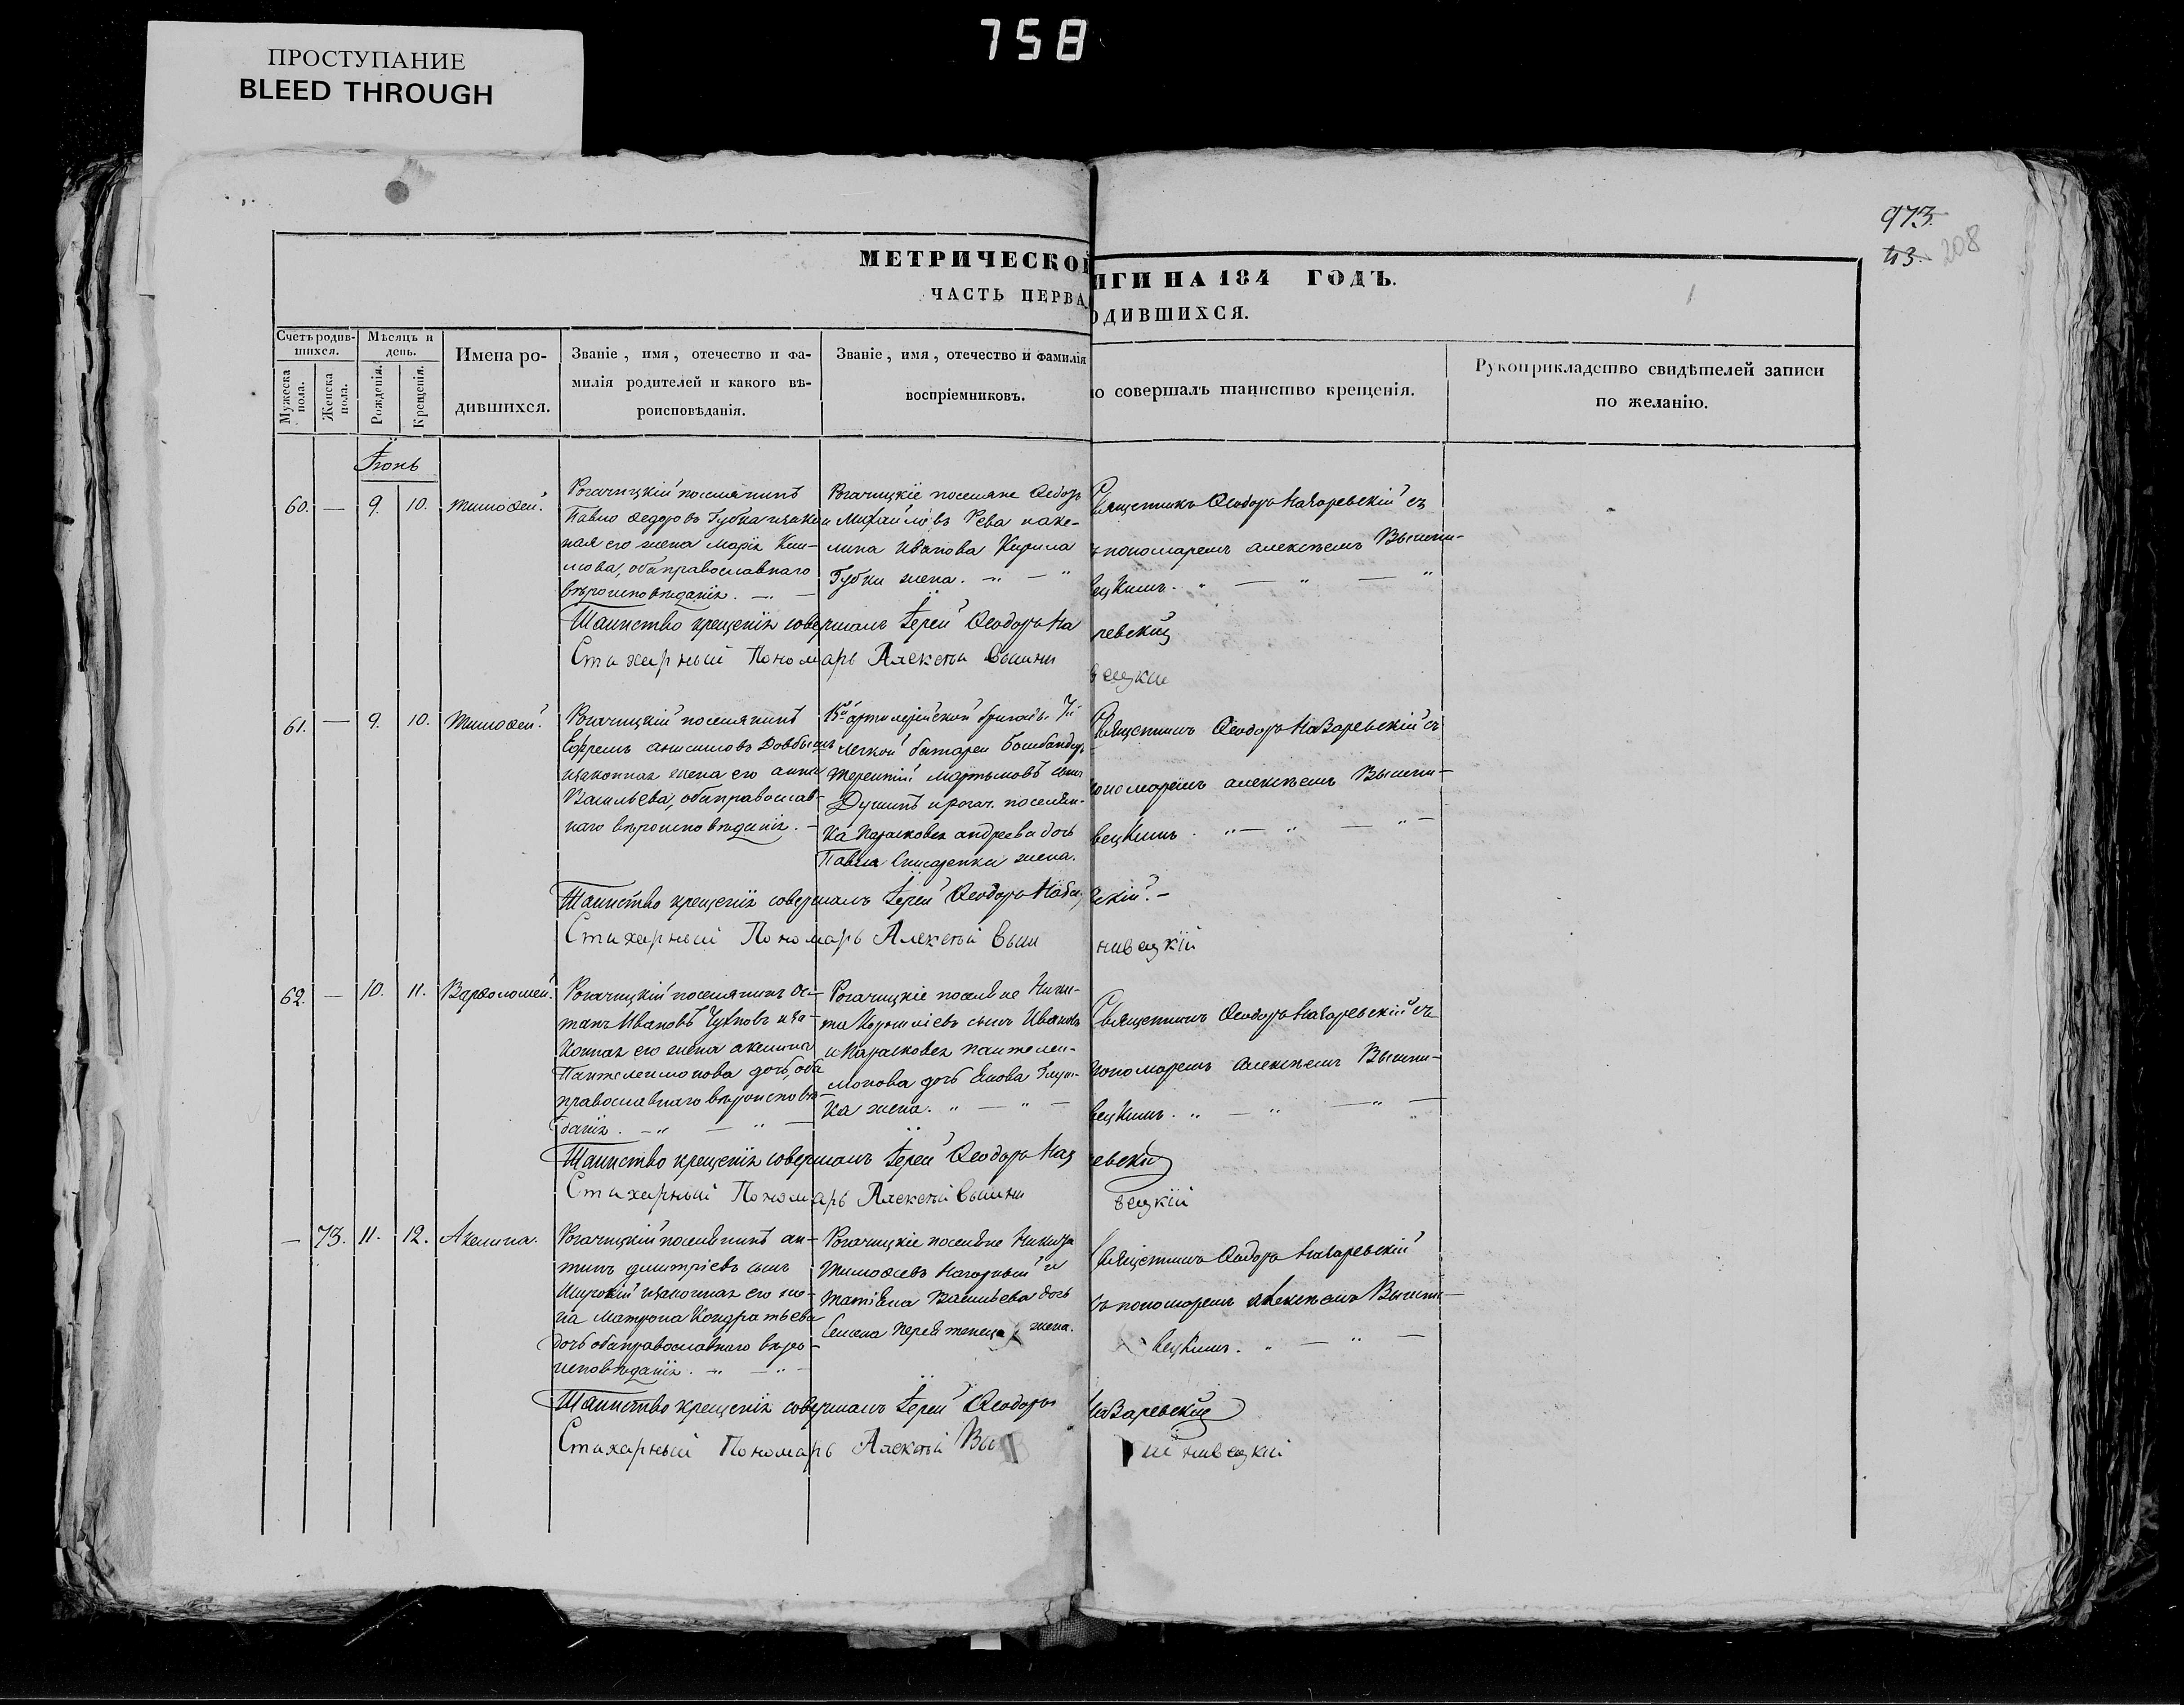 758
ПРОСТУПАНИЕ
BLEED THROUGH
973.
43. 208
МЕТРИЧЕСКОЙ
ИГИ НА 184 ГОДЪ.
ЧАСТЬ ПЕРВА
ОДИВШИХСЯ.
Счетъ родив-
шихся.
Мужеска пола.
Женска пола.
Мѣсяцъ и
день.
Рожденія.
Крещенія.
Имена ро-
дившихся.
Званіе, имя, отечество и фа-
милія родителей и какого вѣ-
роисповѣданія.
Званіе, имя, отечество и фамилія
воспріемниковъ.
о совершалъ таинство крещенія.
Рукоприкладство свидѣтелей записи
по желанію.
Іюнь
60. — 9. 10. Тимоѳей.
Рогачицкій поселянинъ
Павло Ѳедоровъ Губка и закон
ная его жена Марія Кли-
мова, оба православнаго
вѣроисповѣданія.
Рогачицкіе поселяне Ѳедоръ
Михайловъ Рева и аке-
лина Иванова Кирила
Губки жена.
Священникъ Ѳеодоръ Назаревскій съ
пономаремъ алексѣемъ Вышни-
вецкимъ.
Таинство крещенія совершалъ Іерей Ѳеодоръ На
ревскій
Стихарный Пономарь Алексѣй Вышни
вецкій
61. — 9. 10. Тимоѳей.
Рогачицкій поселянинъ
Ефремъ анисимовъ Довбышъ
и законная жена его анна
Васильева, оба православ-
наго вѣроисповѣданія.
артилерійской бригады
легкой батареи Бомбандиръ
Терентій мартыновъ сынъ
и рогач. поселян-
ка Параскова андреева дочь
Павла жена.
Священникъ Ѳеодоръ Назаревскій съ
пономаремъ алексѣемъ Вышни-
вецкимъ.
Таинство крещенія совершалъ Іерей Ѳеодоръ Наза
вскій.
Стихарный Пономарь Алексѣй Выш
нивецкій
62. — 10. 11. Варѳоломей.
Рогачицкій поселянинъ Ос-
тапъ Ивановъ и за-
конная его жена акелина
Пантелеимонова дочь, оба
православнаго вѣроисповѣ-
данія.
Рогачицкіе поселяне Ники-
та сынъ Ивановъ
и Параскова пантелеи-
монова дочь
ка жена.
Священникъ Ѳеодоръ Назаревскій съ
пономаремъ алексѣемъ Вышни-
вецкимъ.
Таинство крещенія совершалъ Іерей Ѳеодоръ Наз
ревскій
Стихарный Пономарь Алексѣй Вышни
вецкій
— 73. 11. 12. Акелина.
Рогачицкій поселянинъ ан-
типъ дмитріевъ сынъ
Широкій и законная его же-
на Матрона Кондратьева
дочь оба православнаго вѣро-
исповѣданія.
Рогачицкіе поселяне Никита
Тимоѳеевъ Нагорный и
Татіяна Васильева дочь
Семена жена.
Священникъ Ѳеодоръ Назаревскій
съ пономаремъ алексѣемъ Вышни-
вецкимъ.
Таинство крещенія совершалъ Іерей Ѳеодоръ
Назаревскій
Стихарный Пономарь Алексѣй Вы
шнивецкій